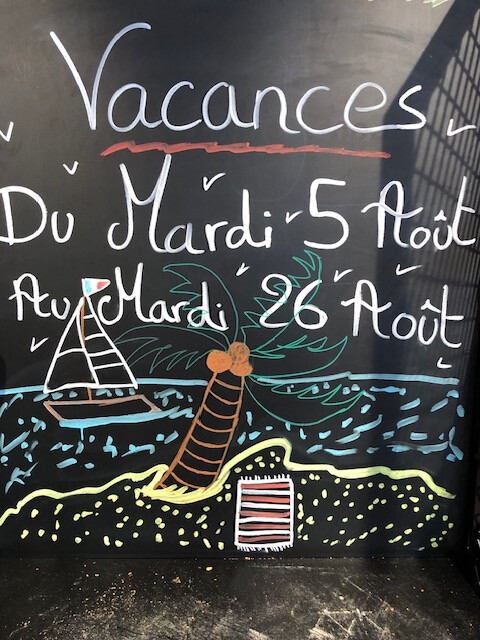 Vacances
Du Mardi 5 Août
Au Mardi 26 Août